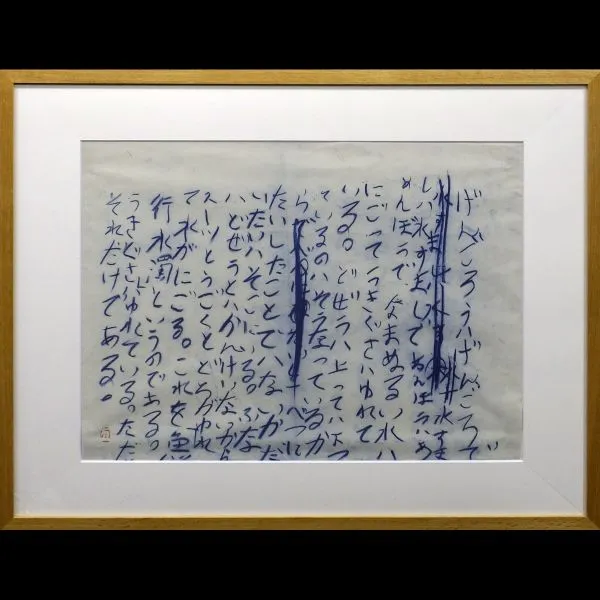 げんごろうハげんごろで
しハ水すましであめんぼうハあ
めんぼうで なまぬるい水ハ
にごってうきぐさハゆれて
いる。どぜうハ上ってハ下っ
ているのハそうなっているか
らで べつに
たいしたことでハない かだ
いたいハそこにいる。ふな
ハどぜうとハかんけいないから
スーッとうごくとどろがゆれ
て水がにごる。これを魚
行水濁というのである。
うきぐさハゆれている。ただ
それだけである。